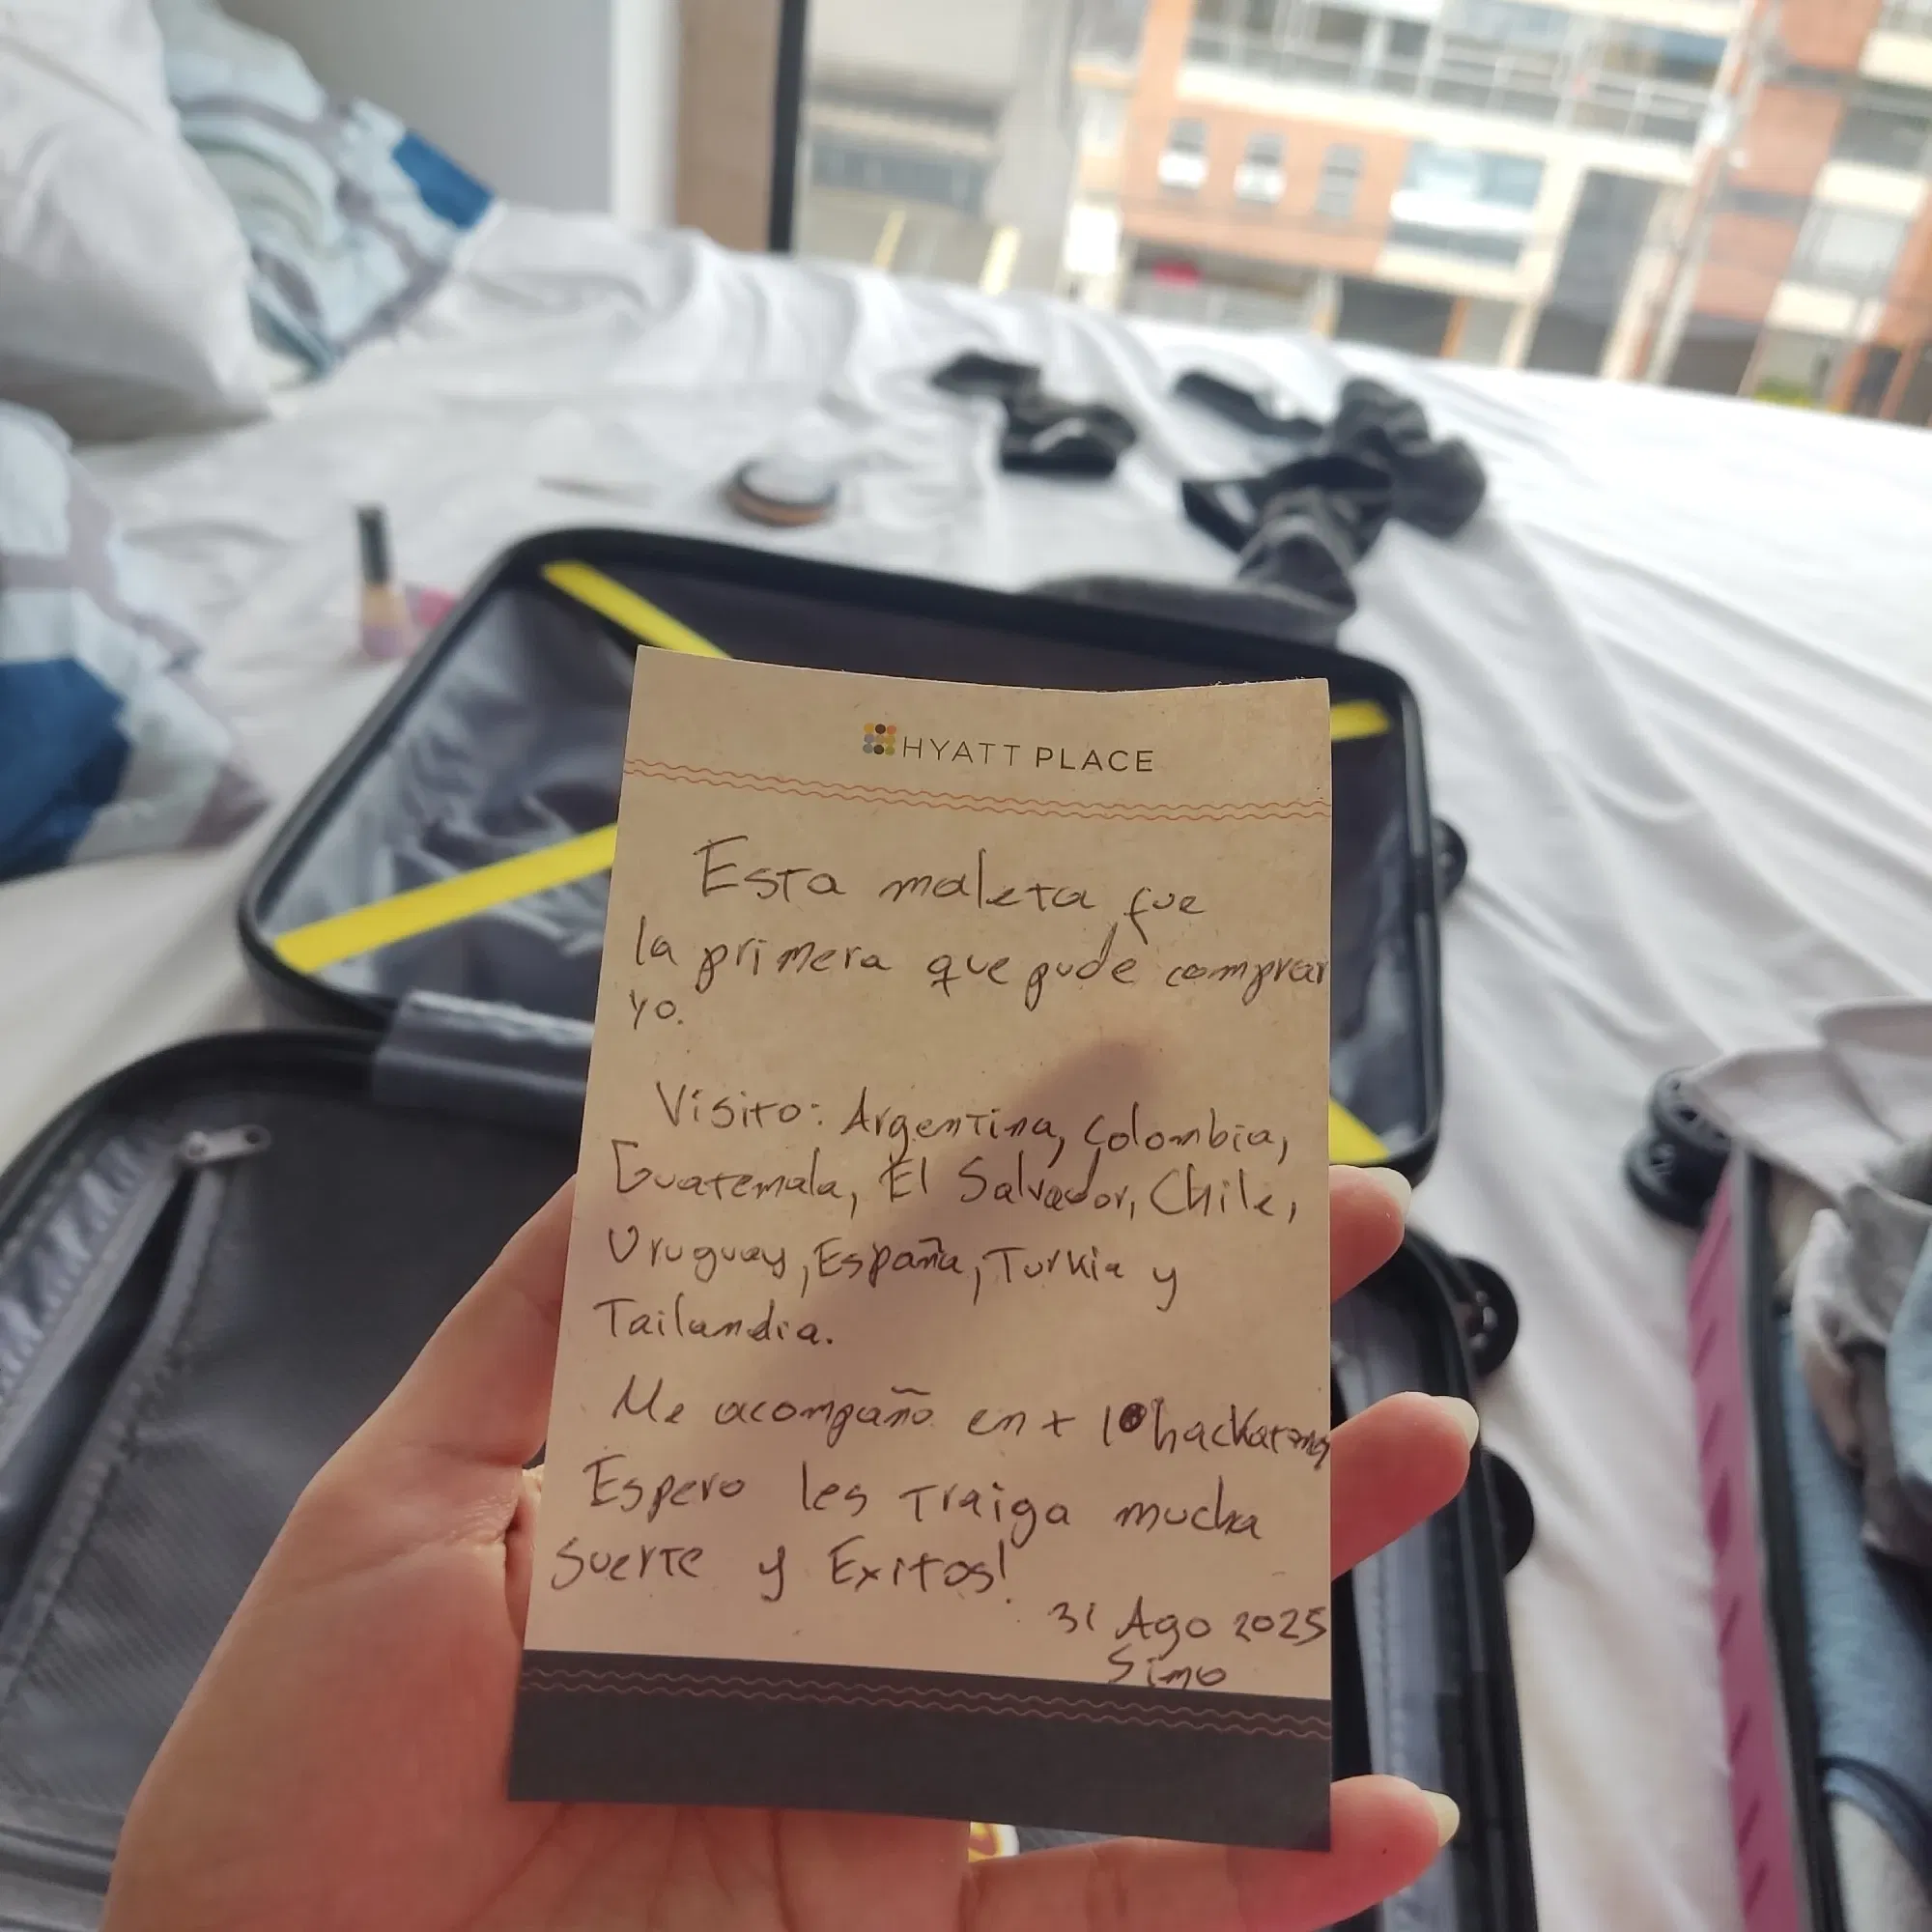 HYATT PLACE
Esta maleta fue
la primera que pude comprar
yo.
Visito: Argentina, Colombia,
Guatemala, El Salvador, Chile,
Uruguay, España, Turkia y
Tailandia.
Me acompaño en + 10 hackatones
Espero les traiga mucha
suerte y Exitos!
31 Ago 2025
Simo